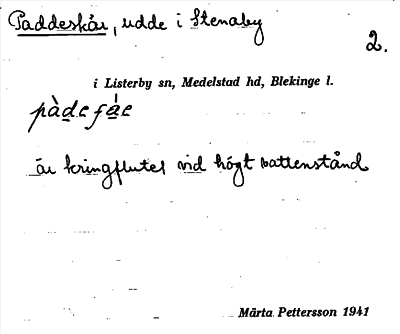 Paddeskär, udde i Stenaby
2.
i Listerby sn, Medelstad hd, Blekinge l.
är kringflutet vid högt vattenstånd
Märta Pettersson 1941